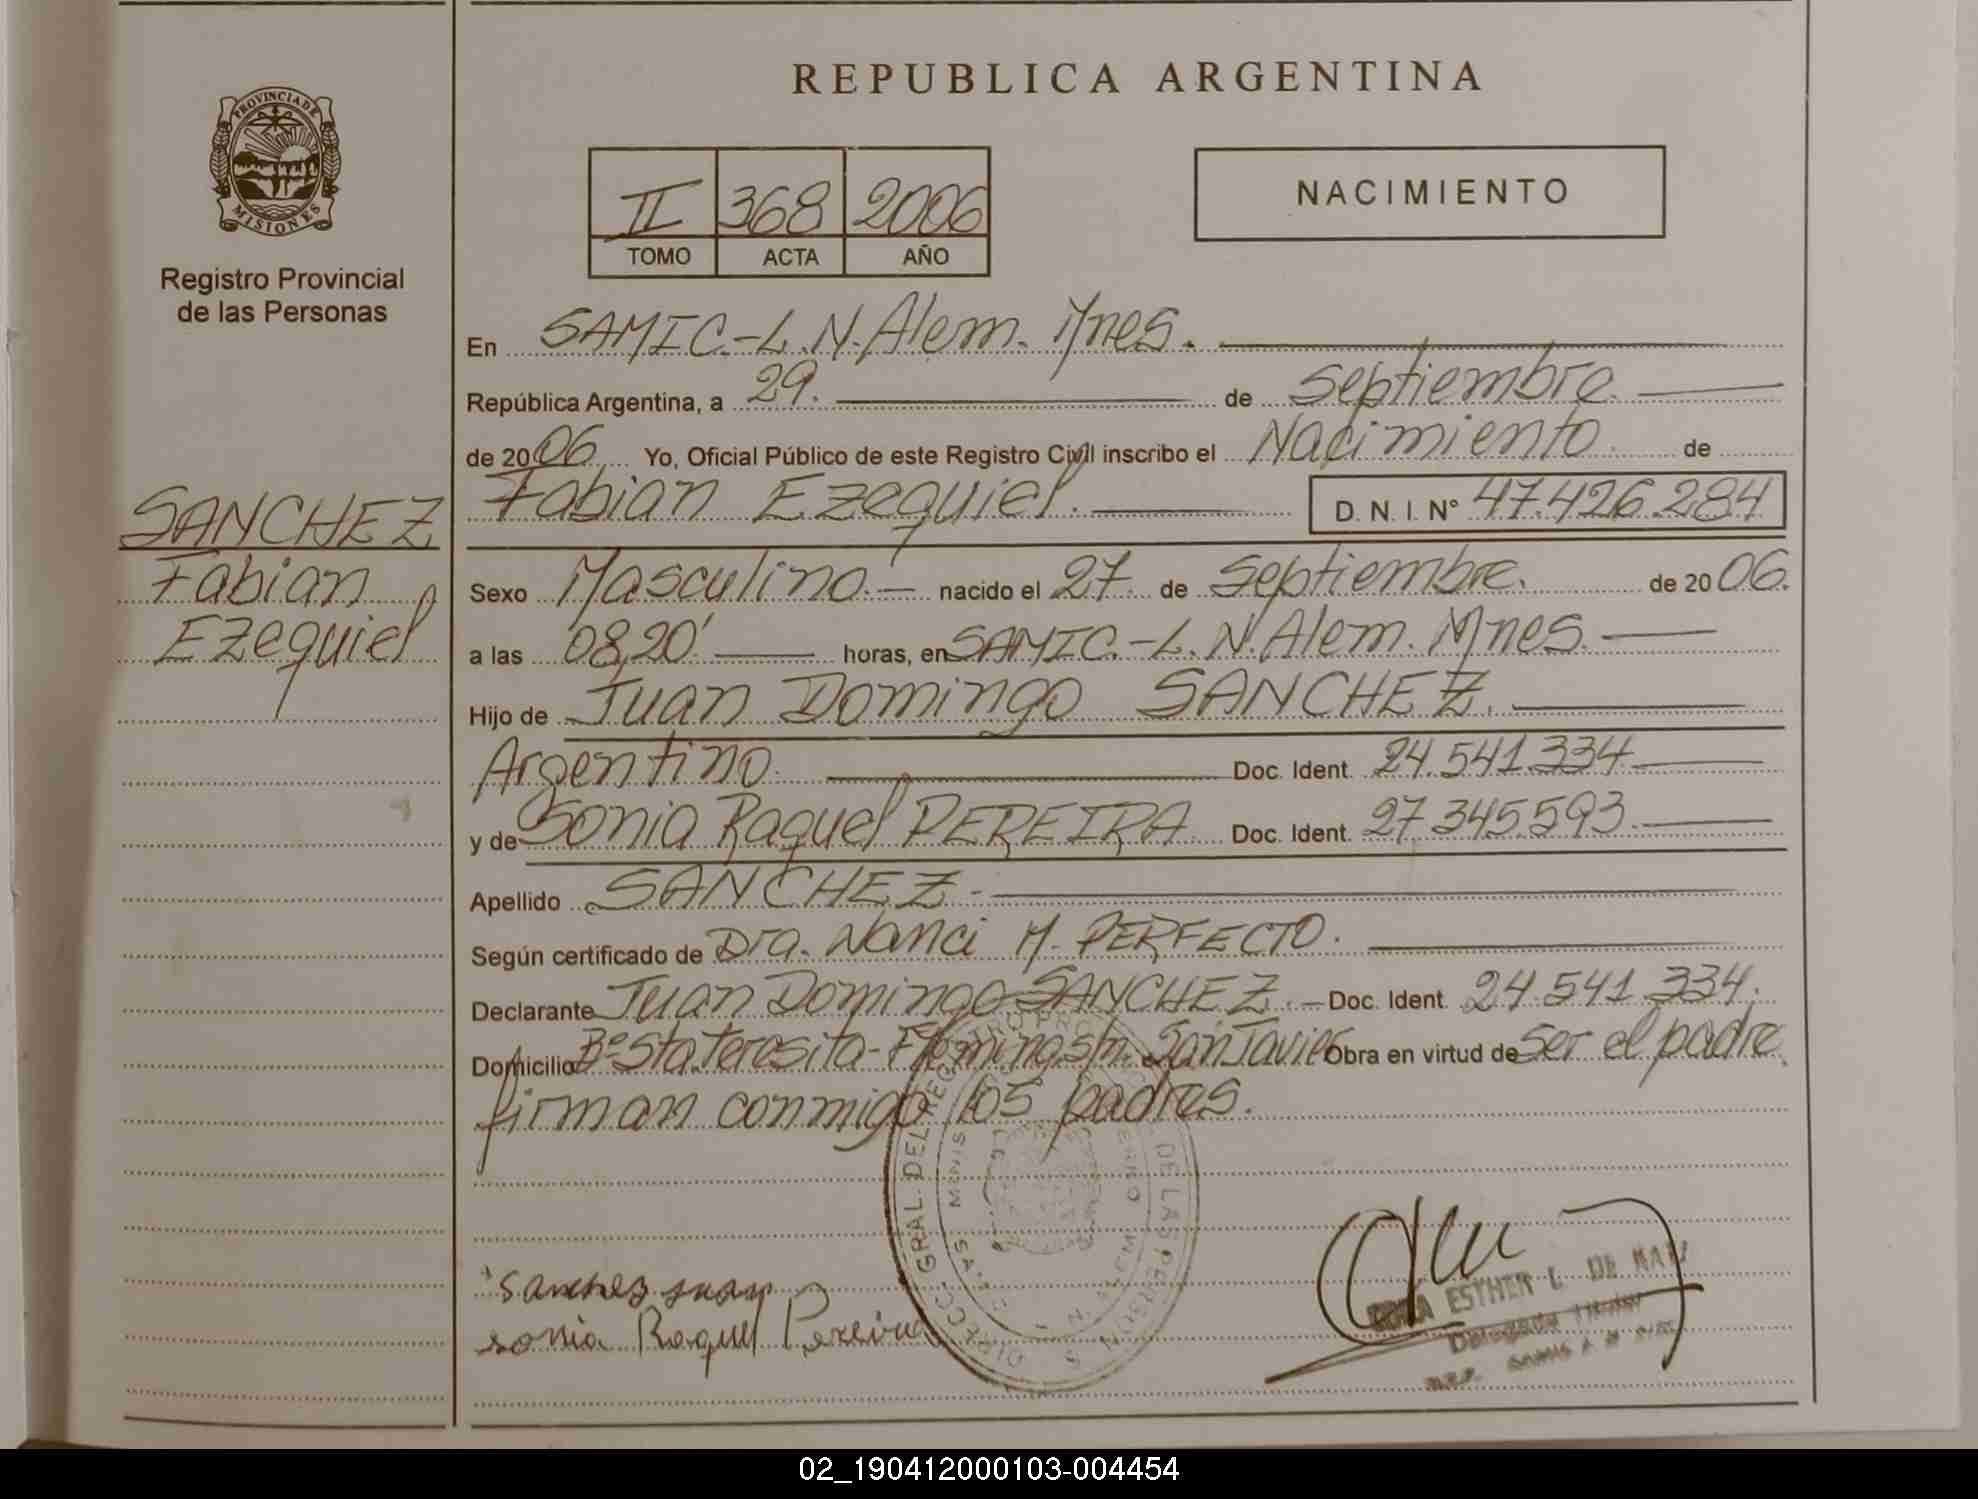 PROVINCIA DE
MISIONES
Registro Provincial
de las Personas
SANCHEZ
Fabian
Ezequiel
REPUBLICA ARGENTINA
II 368 2006
TOMO ACTA AÑO
NACIMIENTO
En SAMIC.-L.N.Alem. Mnes.
República Argentina, a 29. de Septiembre.
de 2006 Yo, Oficial Público de este Registro Civil inscribo el Nacimiento de
Fabian Ezequiel. D. N. I. N° 47.426.284
Sexo Masculino.- nacido el 27 de Septiembre. de 2006.
a las 08,20' horas, en SAMIC.-L.N.Alem. Mnes.
Hijo de Juan Domingo SANCHEZ.
Argentino. Doc. Ident. 24.541.334
y de Sonia Raquel PEREIRA Doc. Ident. 27.345.593.
Apellido SANCHEZ.-
Según certificado de Dra. Nanci M. PERFECTO.
Declarante Juan Domingo SANCHEZ.- Doc. Ident. 24.541.334.
Domicilio B° Sta.Teresita- Fleming s/n. San Javier Obra en virtud de ser el padre
firman conmigo los padres.
Sanchez Juan
Sonia Raquel Pereira
DIRECC. GRAL. DEL REGISTRO PROV. DE LAS PERSONAS
ESTHER L. DE
Delegada Titular
02_190412000103-004454